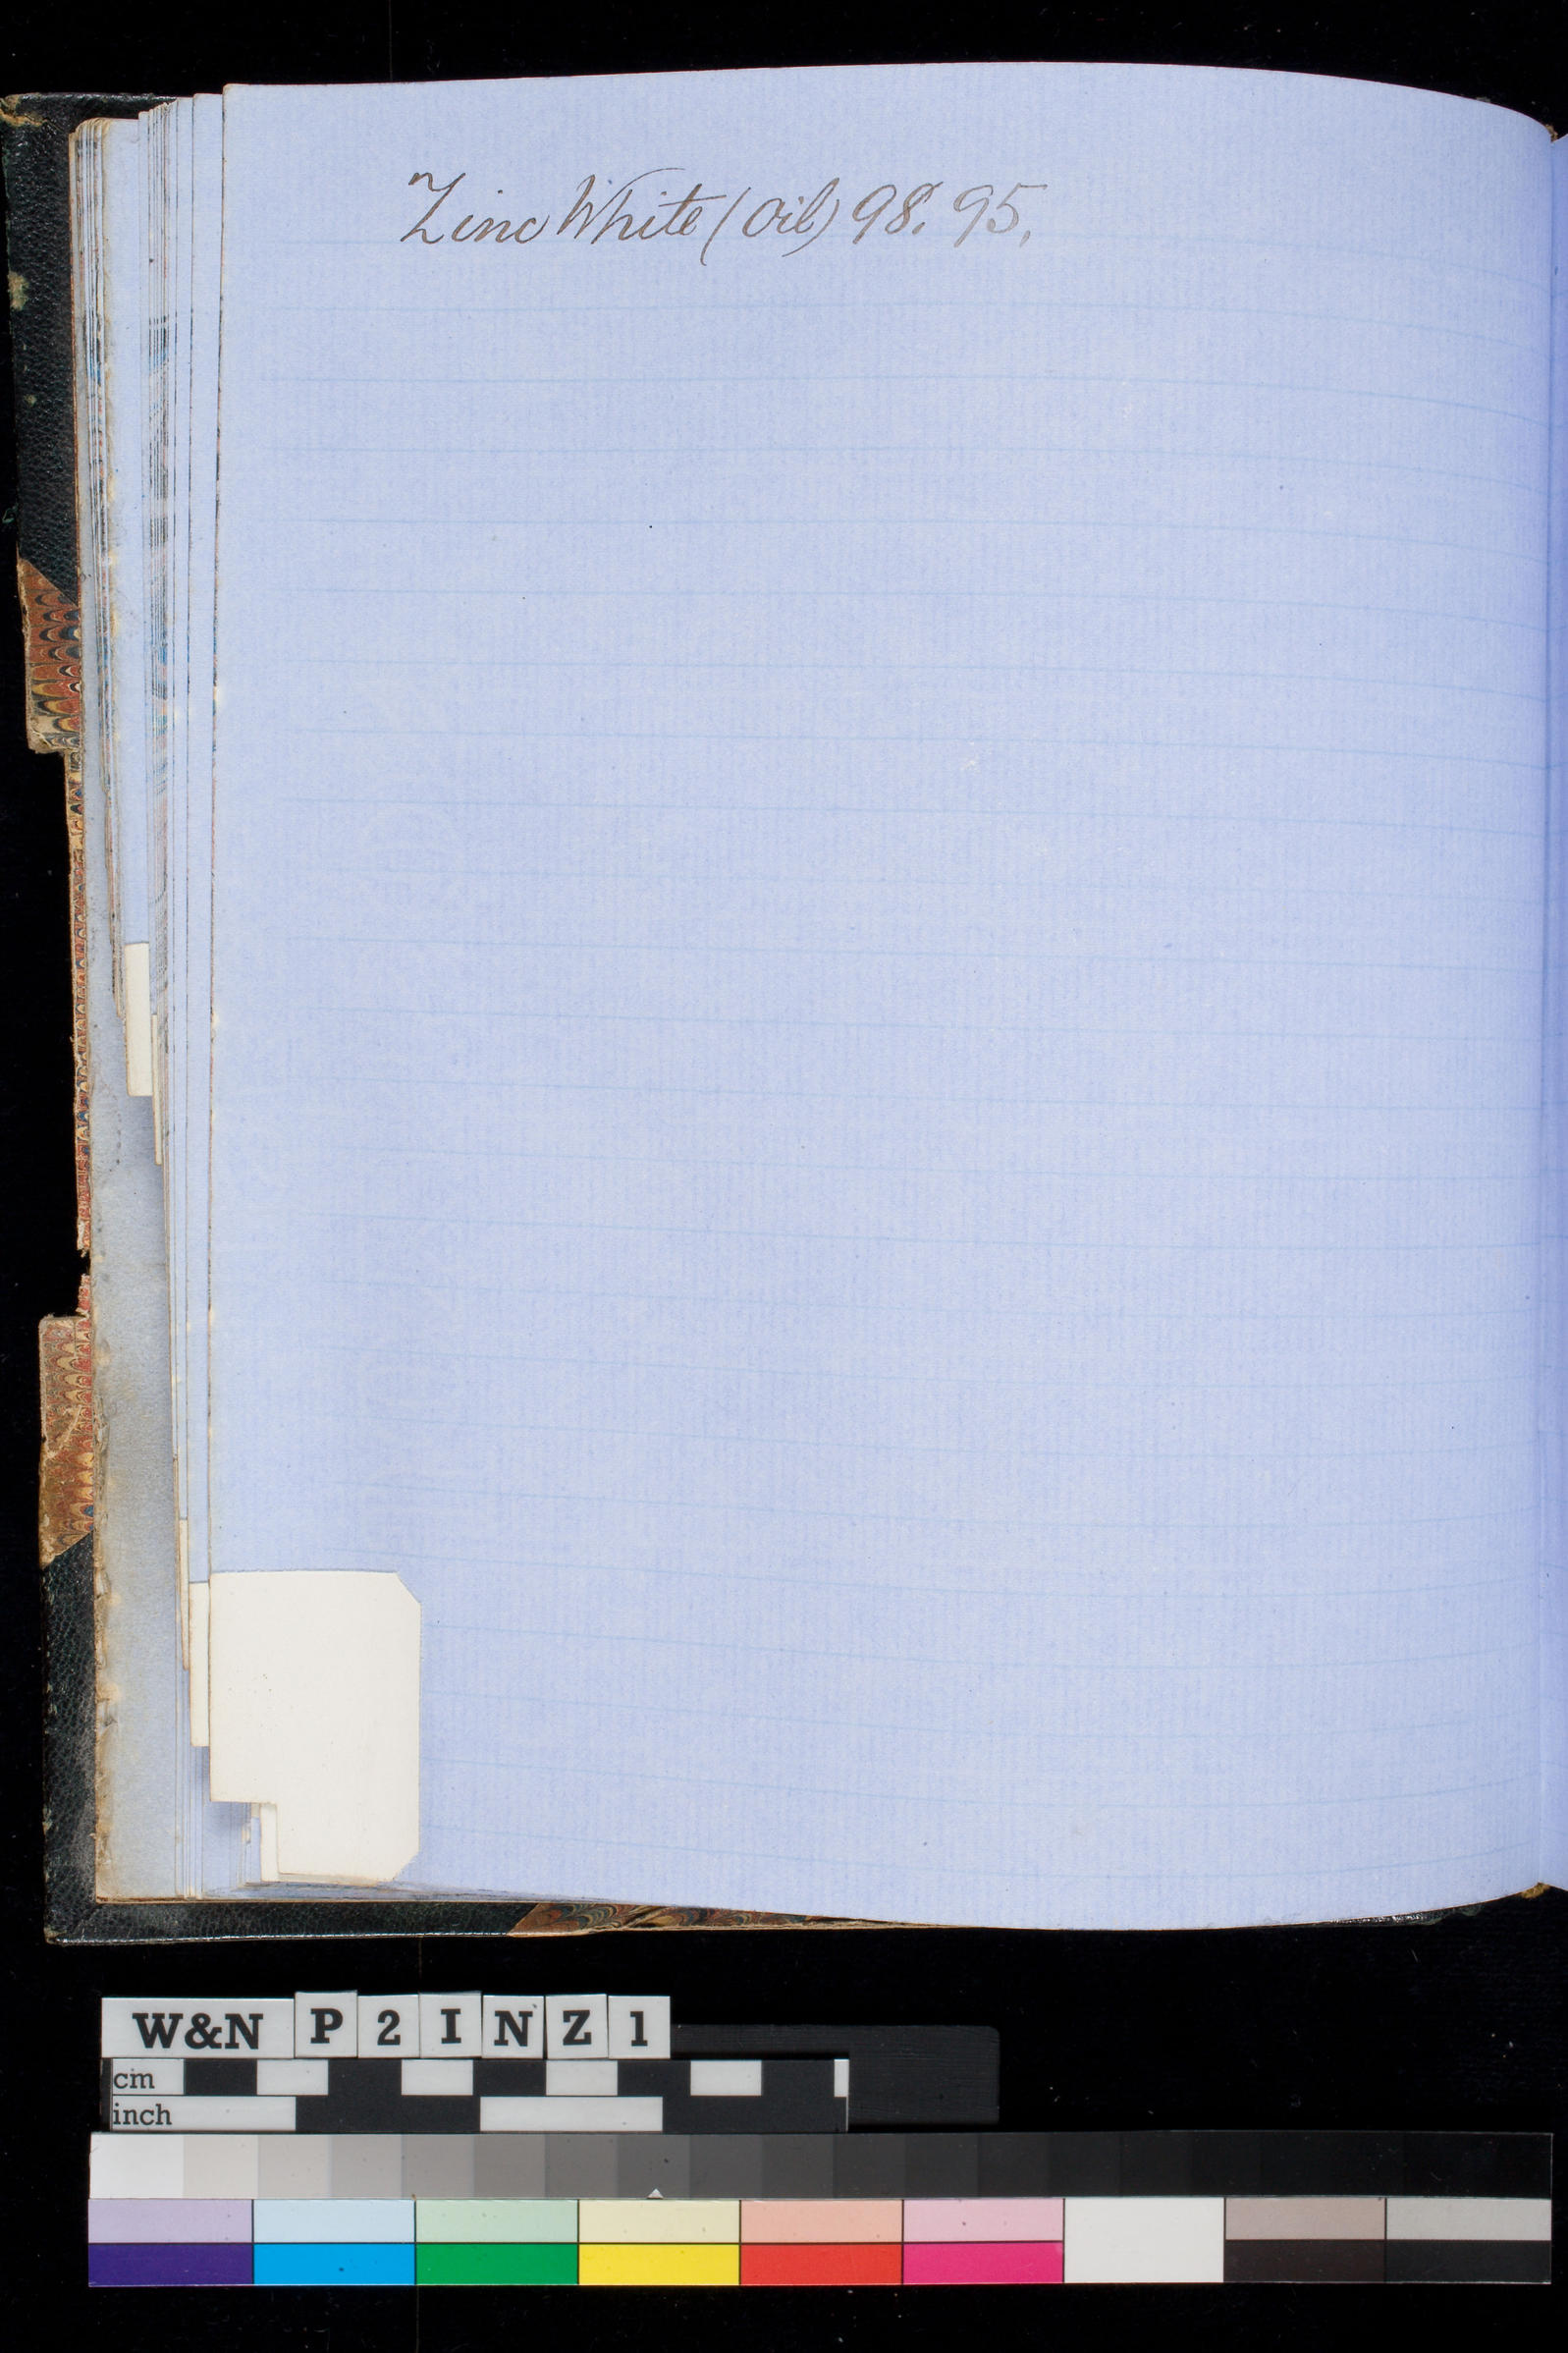 Zinc White (Oil) 98. 95.
W&N P 2 I N Z 1
cm
inch